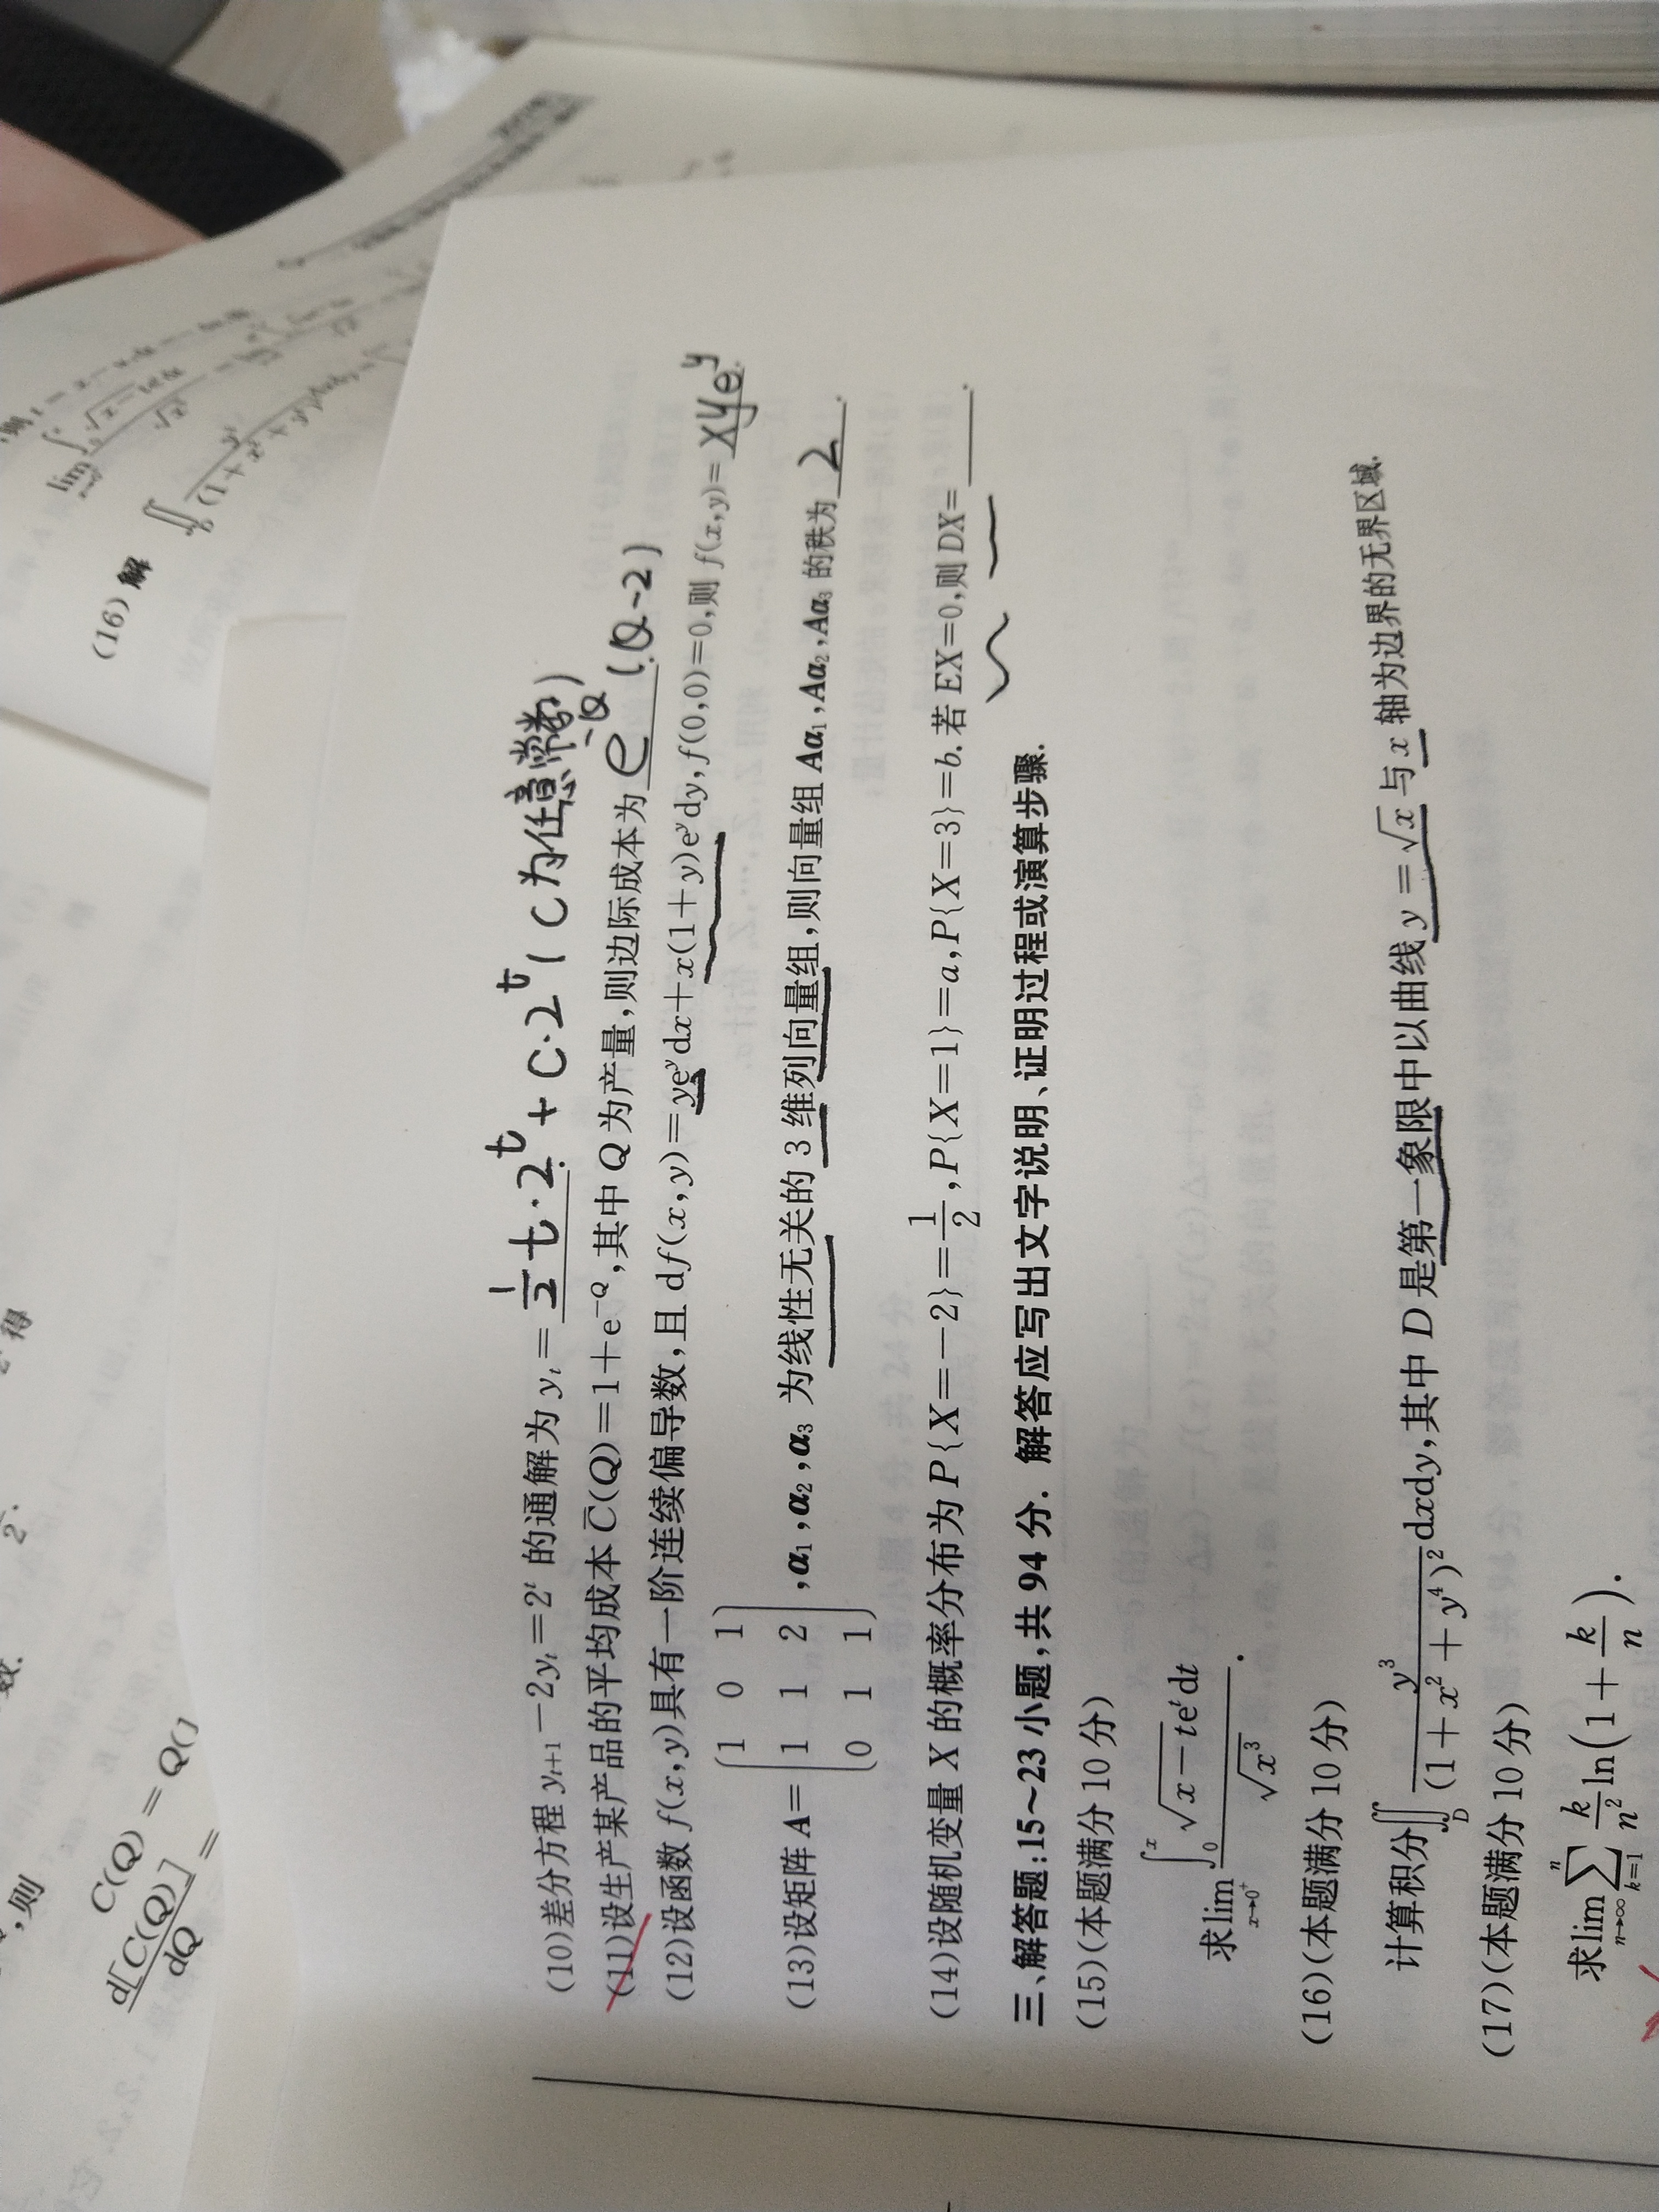 (10)差分方程 yₜ₊₁−2yₜ=2ᵗ 的通解为 yₜ= 1/2 t·2ᵗ + C·2ᵗ (C为任意常数)
(11)设生产某产品的平均成本 C̄(Q)=1+e^{−Q},其中 Q 为产量,则边际成本为 e^{-Q} (Q-2)
(12)设函数 f(x,y)具有一阶连续偏导数,且 df(x,y)=ye^y dx+x(1+y)e^y dy,f(0,0)=0,则 f(x,y)= xye^y.
(13)设矩阵 A=(1 0 1; 1 1 2; 0 1 1),α₁,α₂,α₃ 为线性无关的 3 维列向量组,则向量组 Aα₁,Aα₂,Aα₃ 的秩为 2 .
(14)设随机变量 X 的概率分布为 P{X=−2}=1/2,P{X=1}=a,P{X=3}=b.若 EX=0,则 DX=____.
三、解答题:15~23 小题,共 94 分. 解答应写出文字说明、证明过程或演算步骤.
(15)(本题满分 10 分)
求 lim_{x→0⁺} ∫₀ˣ √(x−t)eᵗdt / √(x³).
(16)(本题满分 10 分)
计算积分∬_D y³/(1+x²+y⁴)² dxdy,其中 D 是第一象限中以曲线 y=√x 与 x 轴为边界的无界区域.
(17)(本题满分 10 分)
求 lim_{n→∞} ∑_{k=1}^{n} k/n² ln(1+k/n).
(16)解
,则
C(Q) = Q(1
d[C(Q)]/dQ =